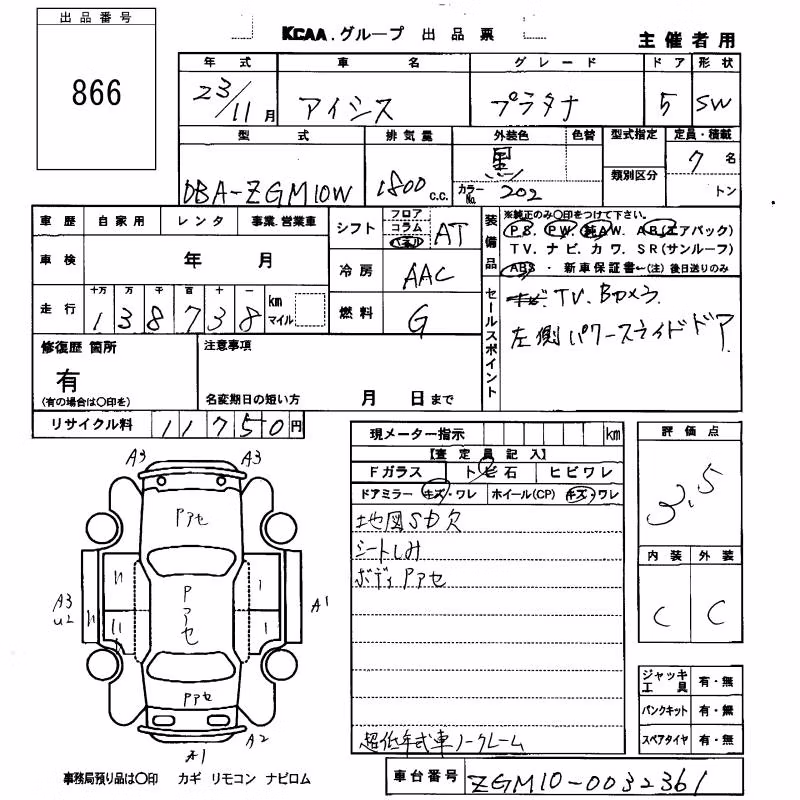 出品番号
866
KCAA.グループ 出品票
主催者用
年式 車名 グレード ドア 形状
23/11月 アイシス プラタナ 5 SW
型式 排気量 外装色 色替 型式指定 定員・積載
DBA-ZGM10W 1800 c.c. 黒 カラーNo. 202 類別区分 7名 トン
車歴 自家用 レンタ 事業.営業車
車検 年 月
走行 十万 万 千 百 十 一 km マイル
138738
シフト フロア コラム パネル AT
冷房 AAC
燃料 G
装備品
※純正のみ〇印をつけて下さい。
PS. PW. 純AW. AB(エアバック)
TV. ナビ. カワ. SR(サンルーフ)
ABS・新車保証書←(注)後日送りのみ
セールスポイント
TV. Bカメラ
左側パワースライドドア
修復歴 箇所
有
(有の場合は〇印を)
注意事項
名変期日の短い方 月 日まで
リサイクル料 11750円
現メーター指示 km
【査定員記入】
Fガラス トビ石 ヒビワレ
ドアミラー キズ・ワレ ホイール(CP) キズ・ワレ
地図SD欠
シートしみ
ボディPアセ
超低年式車ノークレーム
評価点
3.5
内装 外装
C C
ジャッキ工具 有・無
パンクキット 有・無
スペアタイヤ 有・無
A3 A3
Pアセ
Pアセ
Pアセ
A3
U2
A1
A1
A2
事務局預り品は〇印 カギ リモコン ナビロム
車台番号 ZGM10-0032361